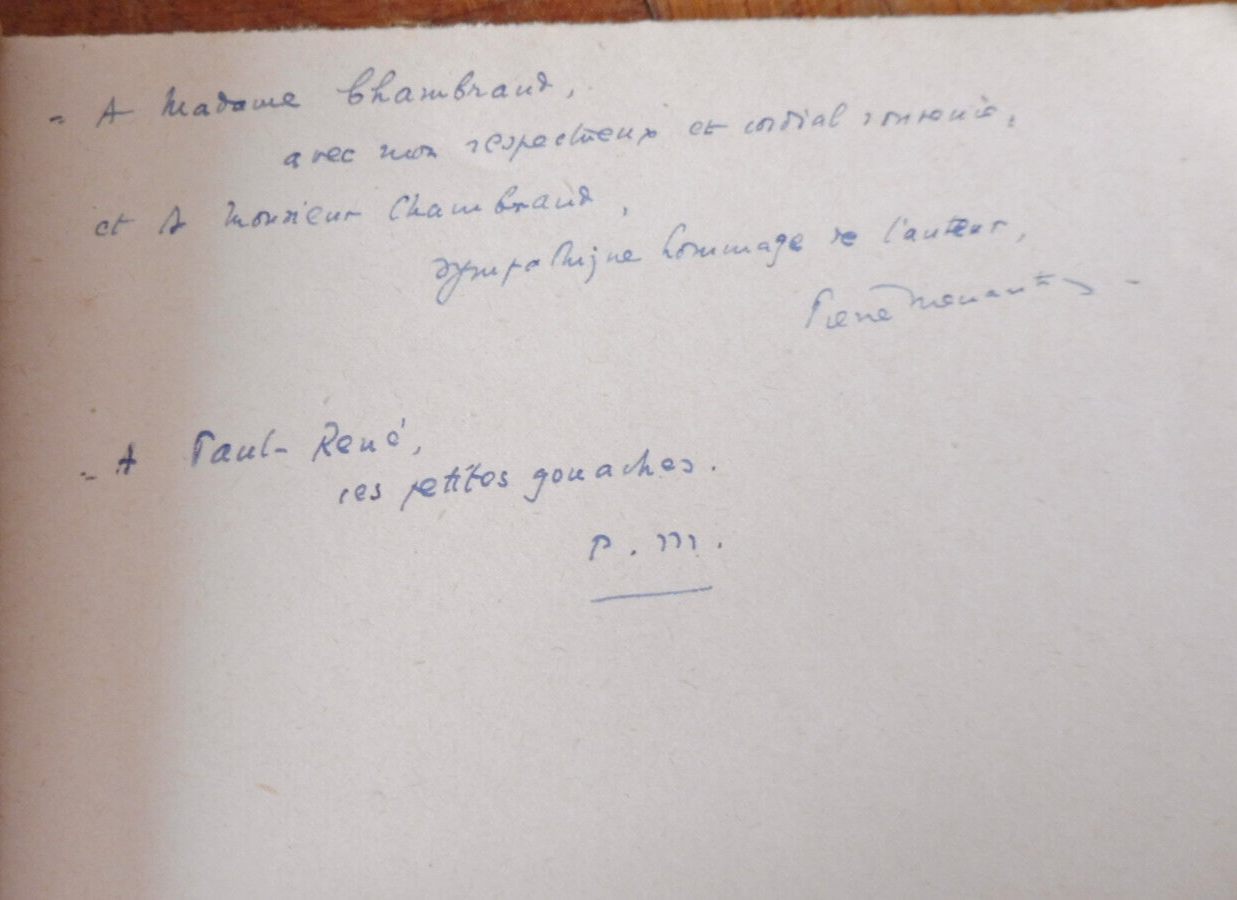 - A Madame Chambraud,
avec mon respectueux et cordial souvenir,
et A Monsieur Chambraud,
sympathique hommage de l'auteur,
Pierre Menanteau -
- A Paul-René,
ces petites gouaches.
P. M.